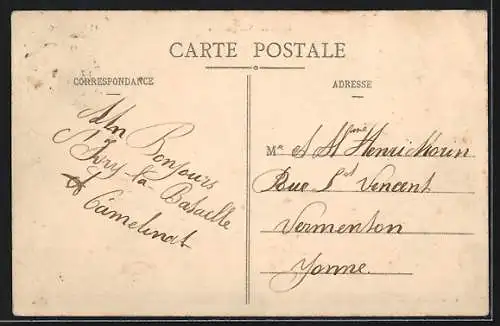 CARTE POSTALE
CORRESPONDANCE
Un Bonjours
d'Ivry la Bataille
Camelinat
ADRESSE
M et Mme Henri Morin
Rue St Vincent
Vermenton
Yonne.